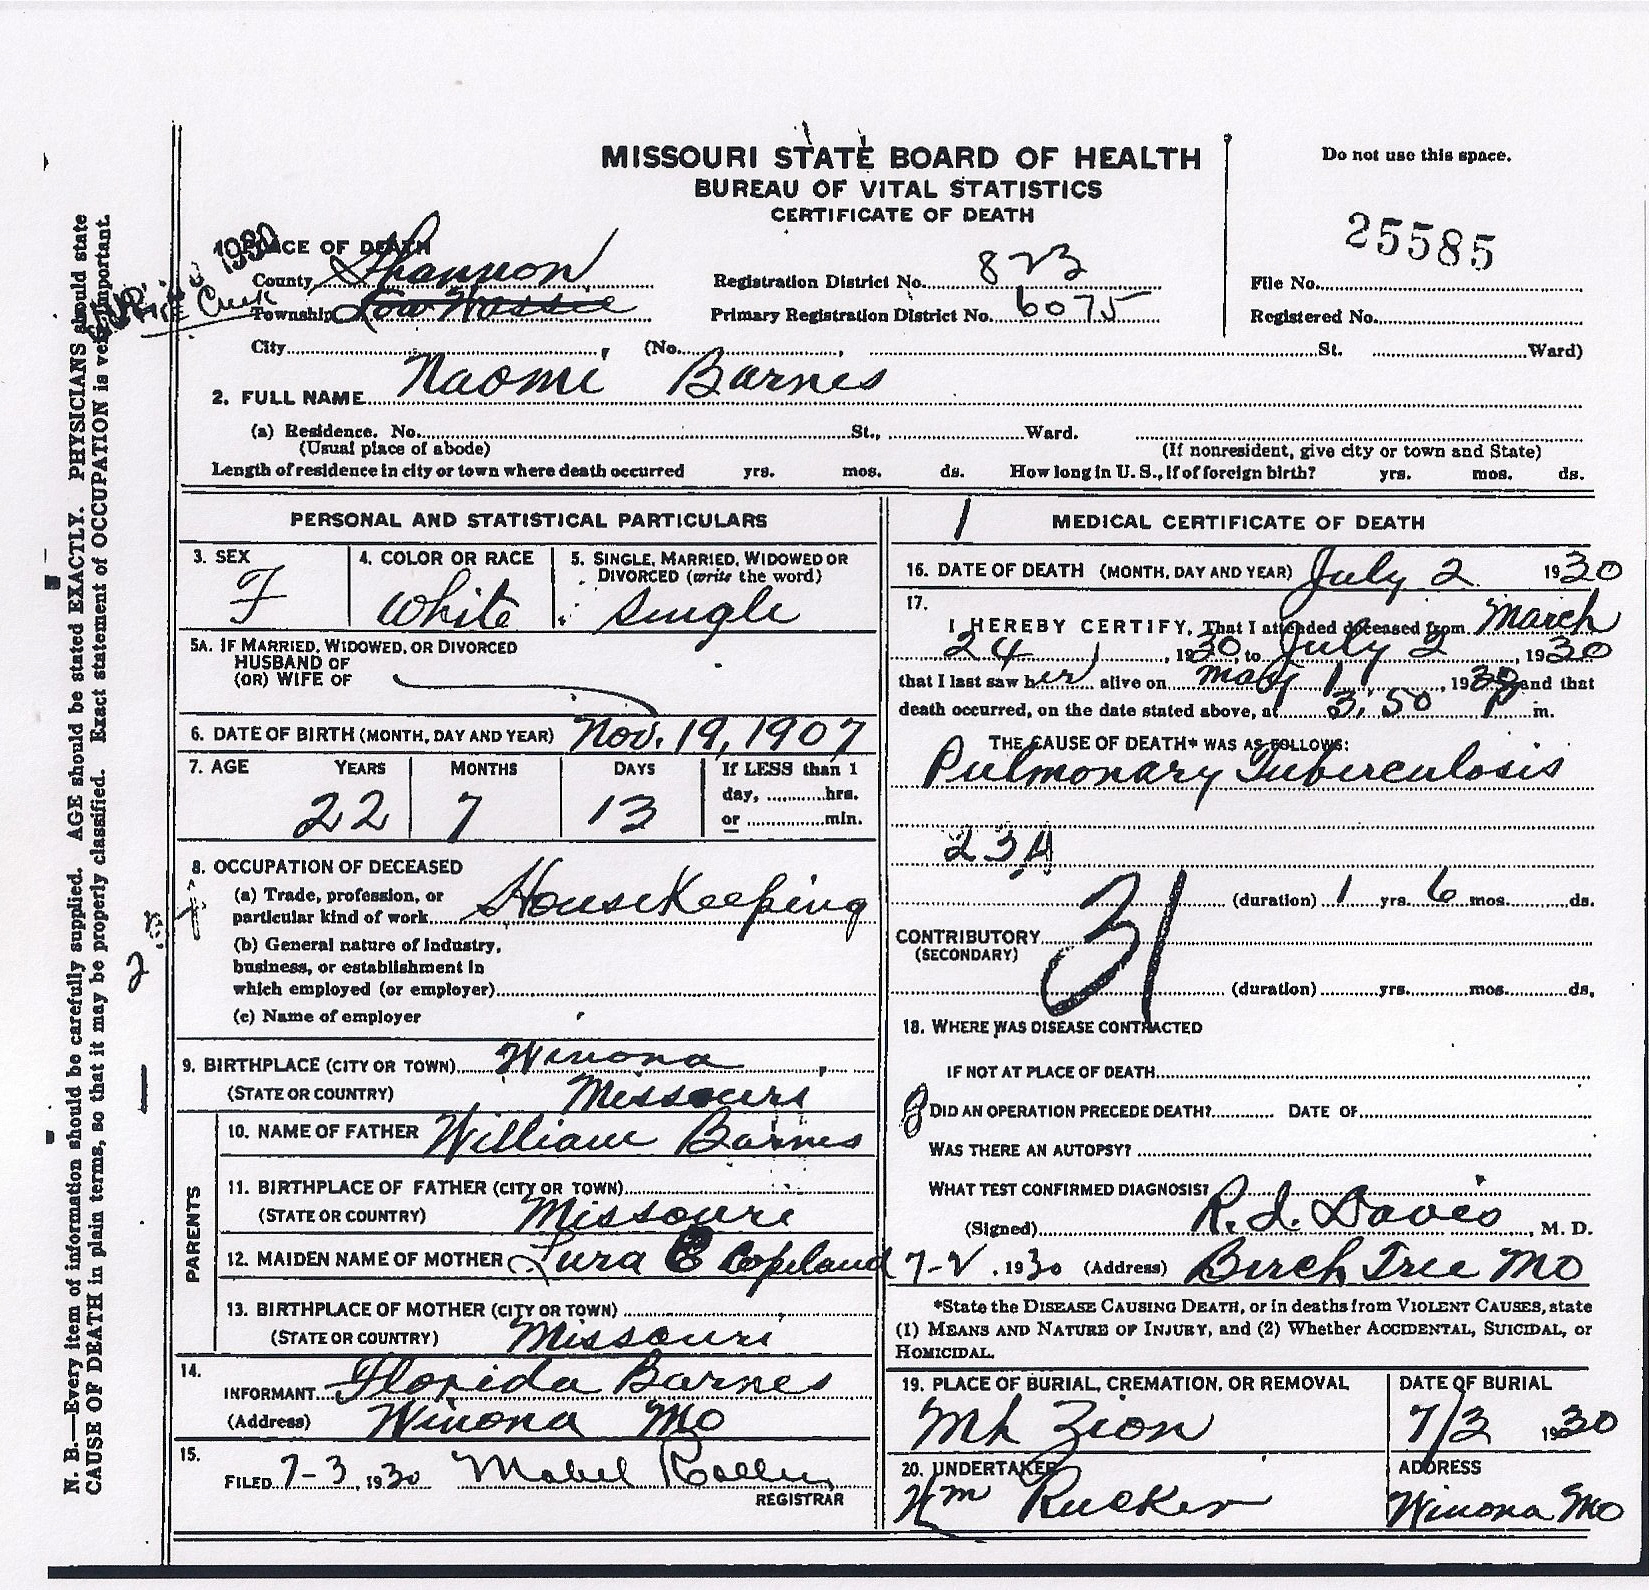 MISSOURI STATE BOARD OF HEALTH
BUREAU OF VITAL STATISTICS
CERTIFICATE OF DEATH
Do not use this space.
25585
1930
PLACE OF DEATH
County Shannon
Registration District No. 823
File No.
Creek
Township Low Wassie
Primary Registration District No. 6075
Registered No.
City (No. , St. Ward)
2. FULL NAME Naomi Barnes
(a) Residence. No. St., Ward.
(Usual place of abode) (If nonresident, give city or town and State)
Length of residence in city or town where death occurred yrs. mos. ds. How long in U. S., if of foreign birth? yrs. mos. ds.
PERSONAL AND STATISTICAL PARTICULARS
3. SEX
F
4. COLOR OR RACE
White
5. SINGLE, MARRIED, WIDOWED OR
DIVORCED (write the word)
Single
5A. IF MARRIED, WIDOWED, OR DIVORCED
HUSBAND OF
(OR) WIFE OF
6. DATE OF BIRTH (MONTH, DAY AND YEAR) Nov. 19, 1907
7. AGE YEARS MONTHS DAYS If LESS than 1
day, hrs.
or min.
22 7 13
8. OCCUPATION OF DECEASED
(a) Trade, profession, or
particular kind of work HouseKeeping
(b) General nature of industry,
business, or establishment in
which employed (or employer)
(c) Name of employer
9. BIRTHPLACE (CITY OR TOWN) Winona
(STATE OR COUNTRY) Missouri
PARENTS
10. NAME OF FATHER William Barnes
11. BIRTHPLACE OF FATHER (CITY OR TOWN)
(STATE OR COUNTRY) Missouri
12. MAIDEN NAME OF MOTHER Lura E Copeland
13. BIRTHPLACE OF MOTHER (CITY OR TOWN)
(STATE OR COUNTRY) Missouri
14.
INFORMANT Florida Barnes
(Address) Winona Mo
15.
FILED 7-3, 1930 Mabel
REGISTRAR
1
MEDICAL CERTIFICATE OF DEATH
16. DATE OF DEATH (MONTH, DAY AND YEAR) July 2 1930
17.
I HEREBY CERTIFY, That I attended deceased from March
24, 1930, to July 2, 1930
that I last saw her alive on May 1, 1930, and that
death occurred, on the date stated above, at 3:50 P m.
THE CAUSE OF DEATH* WAS AS FOLLOWS:
Pulmonary Tuberculosis
23A
(duration) 1 yrs. 6 mos. ds.
31
CONTRIBUTORY
(SECONDARY)
(duration) yrs. mos. ds.
18. WHERE WAS DISEASE CONTRACTED
IF NOT AT PLACE OF DEATH
DID AN OPERATION PRECEDE DEATH? DATE OF
WAS THERE AN AUTOPSY?
WHAT TEST CONFIRMED DIAGNOSIS?
(Signed) R. I. Davis, M. D.
7-2, 1930 (Address) Birch Tree Mo
*State the DISEASE CAUSING DEATH, or in deaths from VIOLENT CAUSES, state
(1) MEANS AND NATURE OF INJURY, and (2) Whether ACCIDENTAL, SUICIDAL, or
HOMICIDAL.
19. PLACE OF BURIAL, CREMATION, OR REMOVAL
Mt Zion
DATE OF BURIAL
7/3 1930
20. UNDERTAKER
Wm Rucker
ADDRESS
Winona Mo
N. B.—Every item of information should be carefully supplied. AGE should be stated EXACTLY. PHYSICIANS should state
CAUSE OF DEATH in plain terms, so that it may be properly classified. Exact statement of OCCUPATION is very important.